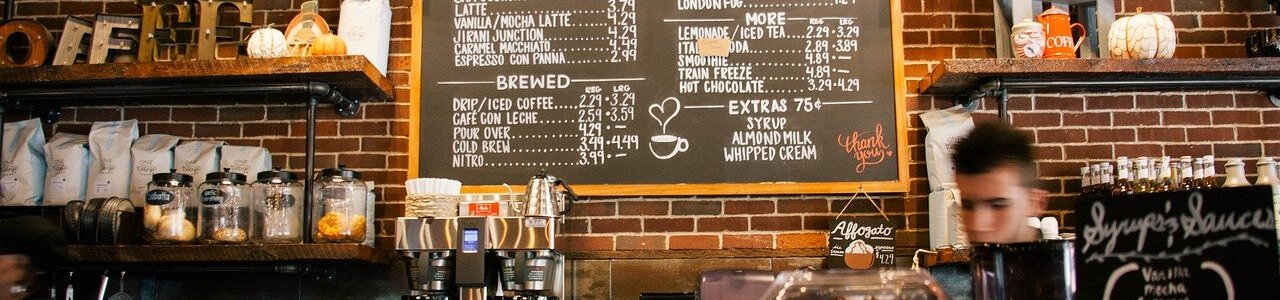 COFFEE
LATTE 3.79
VANILLA/MOCHA LATTE 4.29
JIRANI JUNCTION 4.29
CARAMEL MACCHIATO 4.49
ESPRESSO CON PANNA 2.99
BREWED
REG LRG
DRIP/ICED COFFEE 2.29 • 3.29
CAFÉ CON LECHE 2.59 • 3.59
POUR OVER 4.29 • —
COLD BREW 3.49 • 4.49
NITRO 3.99 • —
LONDON FOG
MORE REG LRG
LEMONADE/ICED TEA 2.29 • 3.29
2.89 • 3.89
SMOOTHIE 4.89 • —
TRAIN FREEZE 4.89 • —
HOT CHOCOLATE 3.29 • 4.29
EXTRAS 75¢
SYRUP
ALMOND MILK
WHIPPED CREAM
thank
you
Affogato
4.29
Syrups & Sauces
Vanilla
Mocha